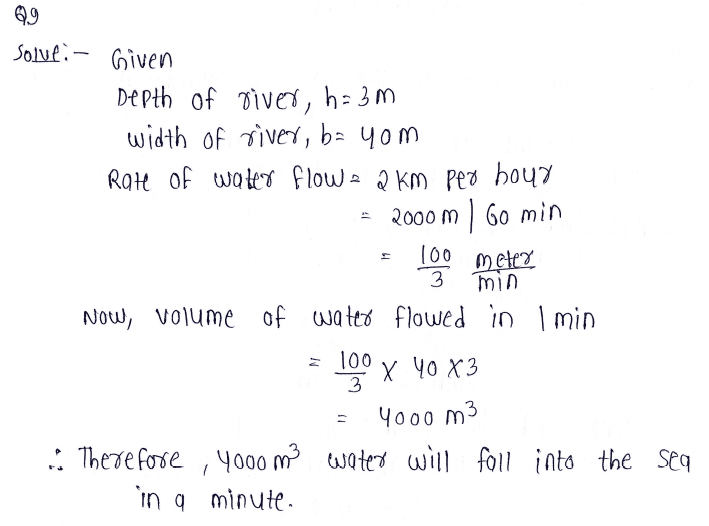 Q9
Solve:- Given
Depth of river, h=3m
width of river, b= 40m
Rate of water flow = 2 km per hour
= 2000m | 60 min
= 100/3 meter/min
Now, volume of water flowed in 1 min
= 100/3 X 40 X 3
= 4000 m³
∴ Therefore, 4000 m³ water will fall into the sea
in a minute.